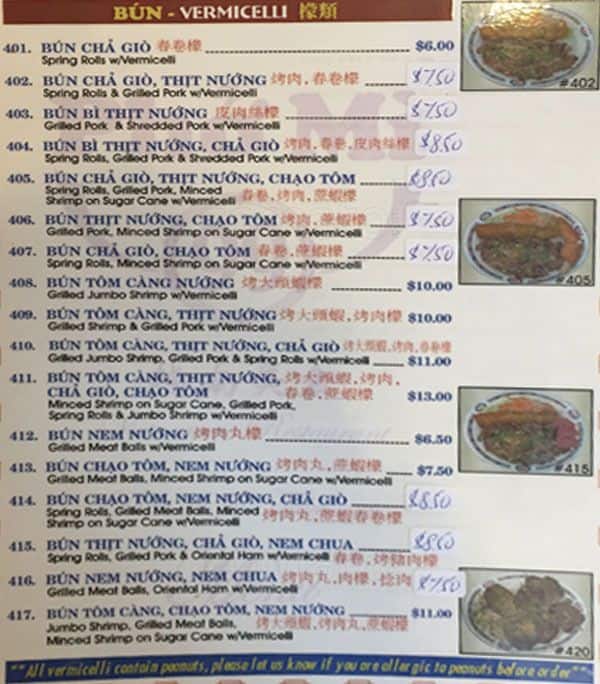 BÚN - VERMICELLI 檬類
401. BÚN CHẢ GIÒ 春卷檬 $6.00
Spring Rolls w/Vermicelli
402. BÚN CHẢ GIÒ, THỊT NƯỚNG 烤肉,春卷檬 $7.50
Spring Rolls & Grilled Pork w/Vermicelli
#402
403. BÚN BÌ THỊT NƯỚNG 皮肉絲檬 $7.50
Grilled Pork & Shredded Pork w/Vermicelli
404. BÚN BÌ THỊT NƯỚNG, CHẢ GIÒ 烤肉,春卷,皮肉絲檬 $8.50
Spring Rolls, Grilled Pork & Shredded Pork w/Vermicelli
405. BÚN CHẢ GIÒ, THỊT NƯỚNG, CHẠO TÔM $8.50
Spring Rolls, Grilled Pork, Minced
Shrimp on Sugar Cane w/Vermicelli 春卷,烤肉,蔗蝦檬
406. BÚN THỊT NƯỚNG, CHẠO TÔM 烤肉,蔗蝦檬 $7.50
Grilled Pork, Minced Shrimp on Sugar Cane w/Vermicelli
407. BÚN CHẢ GIÒ, CHẠO TÔM 春卷,蔗蝦檬 $7.50
Spring Rolls, Minced Shrimp on Sugar Cane w/Vermicelli
#405
408. BÚN TÔM CÀNG NƯỚNG 烤大頭蝦檬 $10.00
Grilled Jumbo Shrimp w/Vermicelli
409. BÚN TÔM CÀNG, THỊT NƯỚNG 烤大頭蝦,烤肉檬 $10.00
Grilled Shrimp & Grilled Pork w/Vermicelli
410. BÚN TÔM CÀNG, THỊT NƯỚNG, CHẢ GIÒ 烤大頭蝦,烤肉,春卷檬
Grilled Jumbo Shrimp, Grilled Pork & Spring Rolls w/Vermicelli $11.00
411. BÚN TÔM CÀNG, THỊT NƯỚNG, 烤大頭蝦,烤肉,
CHẢ GIÒ, CHẠO TÔM 春卷,蔗蝦檬 $13.00
Minced Shrimp on Sugar Cane, Grilled Pork,
Spring Rolls & Jumbo Shrimp w/Vermicelli
412. BÚN NEM NƯỚNG 烤肉丸檬 $6.50
Grilled Meat Balls w/Vermicelli
413. BÚN CHẠO TÔM, NEM NƯỚNG 烤肉丸,蔗蝦檬 $7.50
Grilled Meat Balls, Minced Shrimp on Sugar Cane w/Vermicelli
#415
414. BÚN CHẠO TÔM, NEM NƯỚNG, CHẢ GIÒ $8.50
Spring Rolls, Grilled Meat Balls, Minced
Shrimp on Sugar Cane w/Vermicelli 烤肉丸,蔗蝦春卷檬
415. BÚN THỊT NƯỚNG, CHẢ GIÒ, NEM CHUA $8.50
Spring Rolls, Grilled Pork & Oriental Ham w/Vermicelli 春卷,烤豬肉檬
416. BÚN NEM NƯỚNG, NEM CHUA 烤肉丸,肉檬,捻肉 $7.50
Grilled Meat Balls, Oriental Ham w/Vermicelli
417. BÚN TÔM CÀNG, CHẠO TÔM, NEM NƯỚNG $11.00
Jumbo Shrimp, Grilled Meat Balls, 烤大頭蝦,烤肉丸,蔗蝦檬
Minced Shrimp on Sugar Cane w/Vermicelli
#420
**All vermicelli contain peanuts, please let us know if you are allergic to peanuts before order**